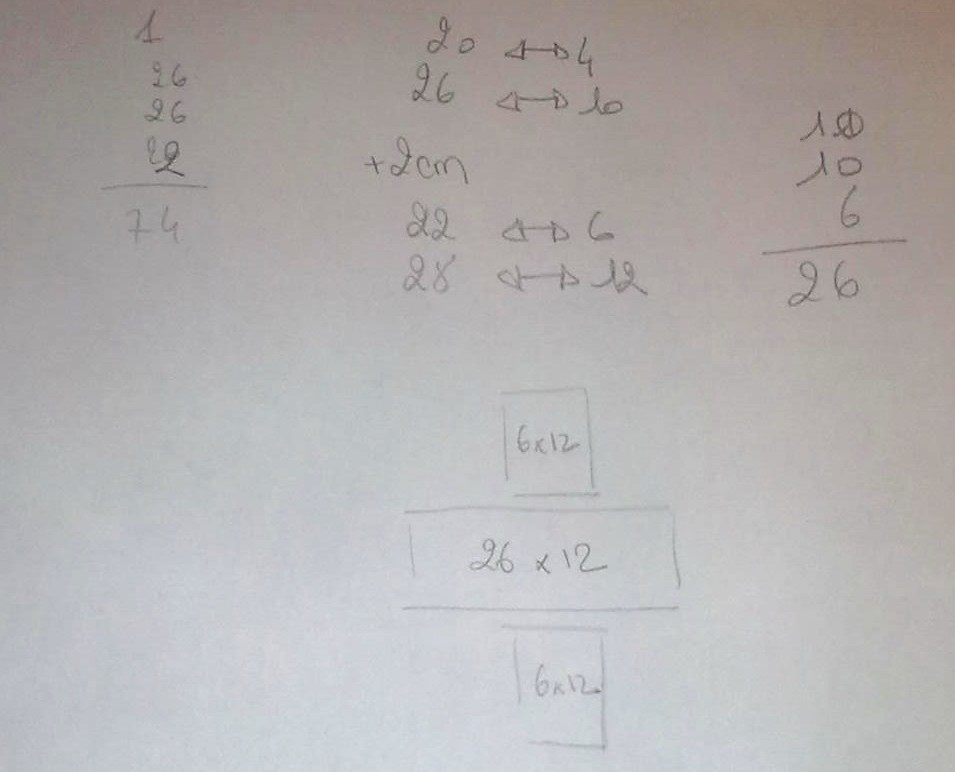 1
26
26
22
74
20 ↔ 4
26 ↔ 10
+2cm
22 ↔ 6
28 ↔ 12
10
10
6
26
6x12
26 x 12
6x12